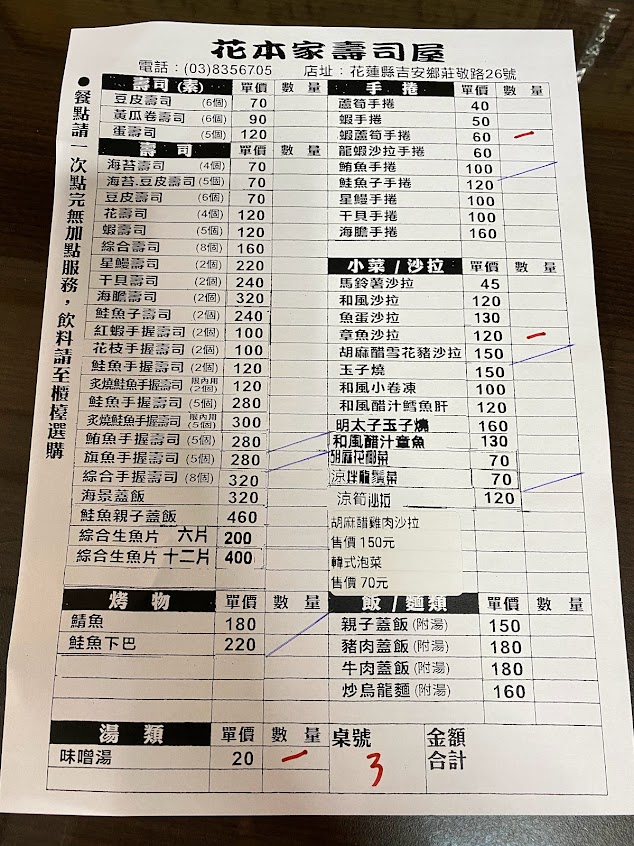 花本家壽司屋
電話：(03)8356705 店址：花蓮縣吉安鄉莊敬路26號
●餐點請一次點完無加點服務，飲料請至櫃檯選購
壽司(素) 單價 數量
豆皮壽司 (6個) 70
黃瓜卷壽司 (6個) 90
蛋壽司 (5個) 120
壽司 單價 數量
海苔壽司 (4個) 70
海苔.豆皮壽司 (5個) 70
豆皮壽司 (6個) 70
花壽司 (4個) 120
蝦壽司 (5個) 120
綜合壽司 (8個) 160
星鰻壽司 (2個) 220
干貝壽司 (2個) 240
海膽壽司 (2個) 320
鮭魚子壽司 (2個) 240
紅蝦手握壽司 (2個) 100
花枝手握壽司 (2個) 100
鮭魚手握壽司 (2個) 120
炙燒鮭魚手握壽司 限內用(2個) 120
鮭魚手握壽司 (5個) 280
炙燒鮭魚手握壽司 限內用(5個) 300
鮪魚手握壽司 (5個) 280
旗魚手握壽司 (5個) 280
綜合手握壽司 (8個) 320
海景蓋飯 320
鮭魚親子蓋飯 460
綜合生魚片 六片 200
綜合生魚片 十二片 400
烤物 單價 數量
鯖魚 180
鮭魚下巴 220
湯類 單價 數量
味噌湯 20 一
手捲 單價 數量
蘆筍手捲 40
蝦手捲 50
蝦蘆筍手捲 60 一
龍蝦沙拉手捲 60
鮪魚手捲 100
鮭魚子手捲 120
星鰻手捲 100
干貝手捲 100
海膽手捲 160
小菜/沙拉 單價 數量
馬鈴薯沙拉 45
和風沙拉 120
魚蛋沙拉 130
章魚沙拉 120 一
胡麻醋雪花豬沙拉 150
玉子燒 150
和風小卷凍 100
和風醋汁鱈魚肝 120
明太子玉子燒 160
和風醋汁章魚 130
胡麻花椰菜 70
涼拌龍鬚菜 70
涼筍沙拉 120
胡麻醋雞肉沙拉
售價 150元
韓式泡菜
售價 70元
飯/麵類 單價 數量
親子蓋飯(附湯) 150
豬肉蓋飯(附湯) 180
牛肉蓋飯(附湯) 180
炒烏龍麵(附湯) 160
桌號 3
金額合計